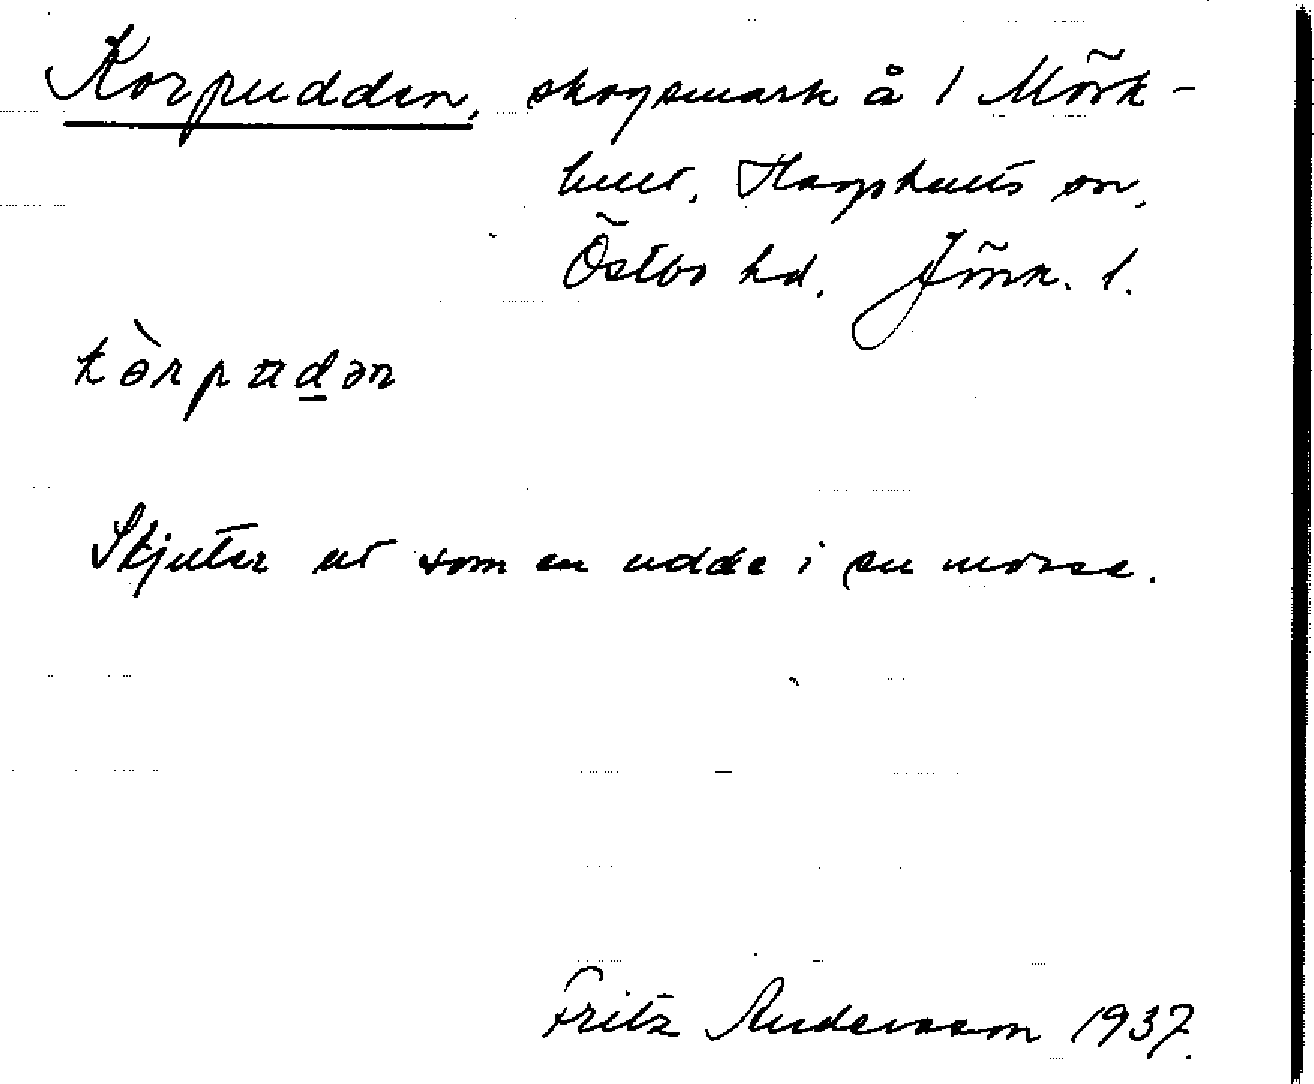 Korpudden, skogsmark å 1 Mörk-
hult, Hagshults sn,
Östbo hd. Jönk. l.
kòrpudən
Skjuter ut som en udde i en mosse.
Fritz Andersson 1937.